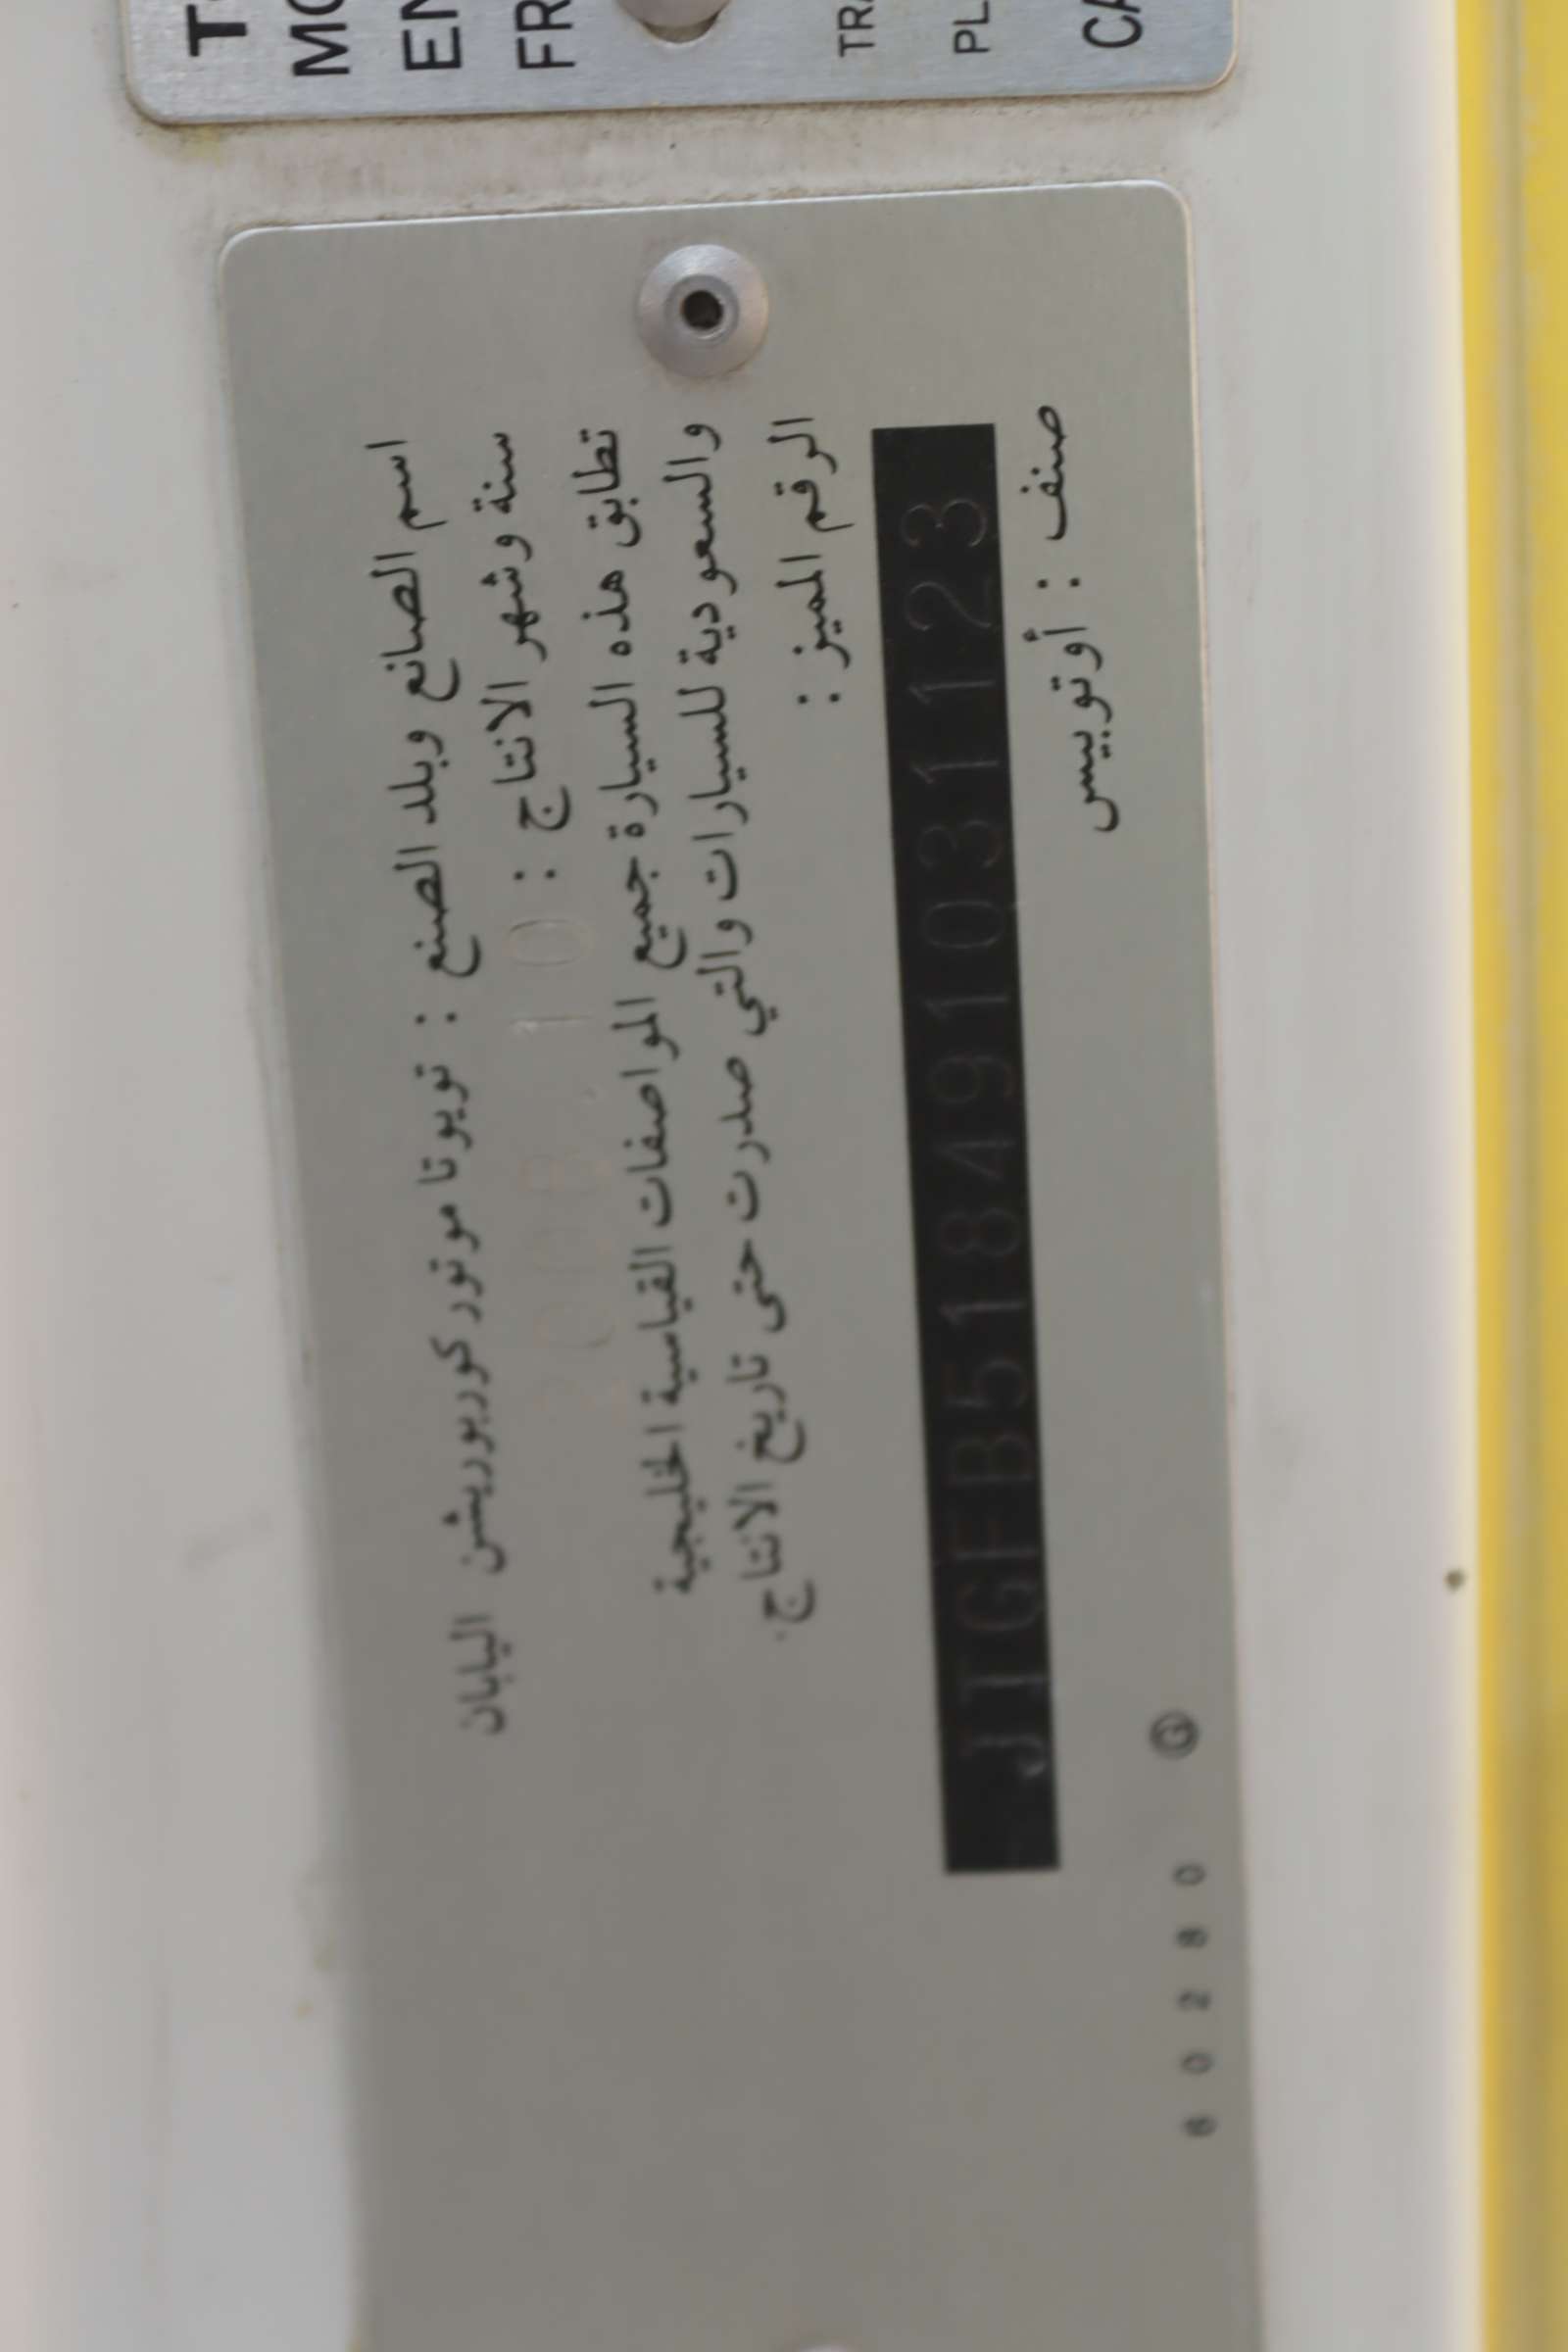 اسم الصانع وبلد الصنع : تويوتا موتور كوربوريشن اليابان
سنة وشهر الانتاج : 2008.10
تطابق هذه السيارة جميع المواصفات القياسية الخليجية
والسعودية للسيارات والتي صدرت حتى تاريخ الانتاج.
الرقم المميز :
JTGFB518491031123
صنف : أوتوبيس
6 0 2 8 0
T
MO
EN
FR
TRA
PL
CA